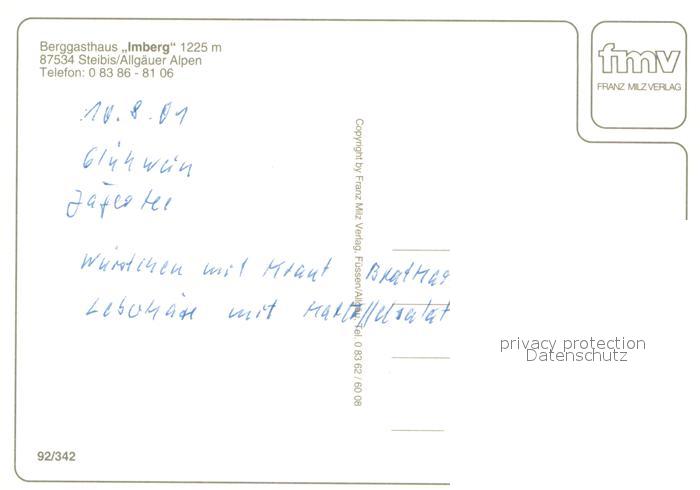 Berggasthaus „Imberg“ 1225 m
87534 Steibis/Allgäuer Alpen
Telefon: 0 83 86 - 81 06
fmv
FRANZ MILZ VERLAG
10.8.01
Glühwein
Jägertee
Würstchen mit Kraut Bratkar
Leberkäse mit Kartoffelsalat
Copyright by Franz Milz Verlag, Füssen/Allgäu, Tel. 0 83 62 / 60 08
privacy protection
Datenschutz
92/342